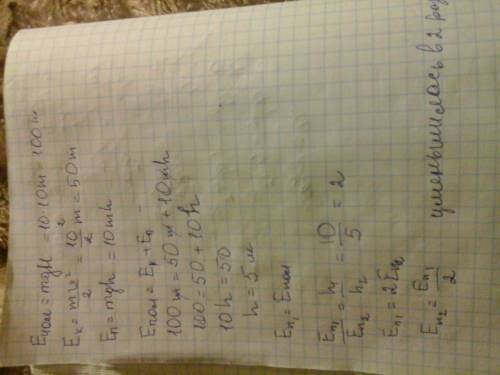 Eпол = mgH = 10·10m = 100m
Eк = mv²/2 = 10²/2 m = 50m
Eп = mgh = 10mh
Eпол = Eк + Eп
100m = 50m + 10mh
100 = 50 + 10h
10h = 50
h = 5м
Eп₁ = Eпол
Eп₁/Eп₂ = h₁/h₂ = 10/5 = 2
Eп₁ = 2Eп₂
Eп₂ = Eп₁/2 уменьшилась в 2 раз